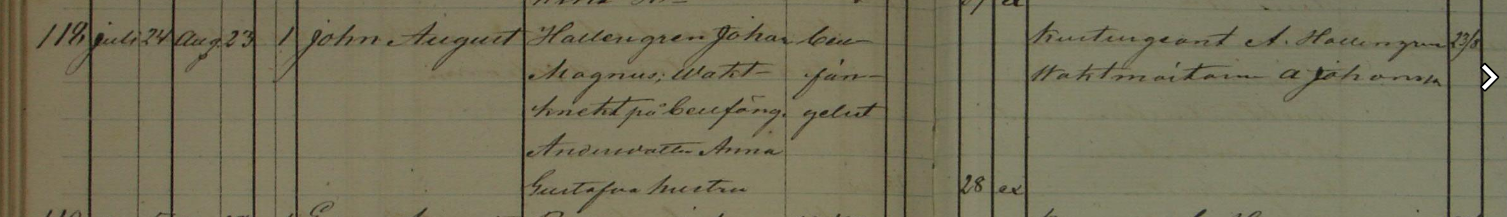 118 juli 24 Aug. 23 1 John August Hallengren Johan Cen- A. Hallengren 23/8
Magnus, Wakt- fän- Waktmästaren A Johansson
knekt på Cenfäng. gelset
Andersdotter Anna
Gustafva hustru 28 ex